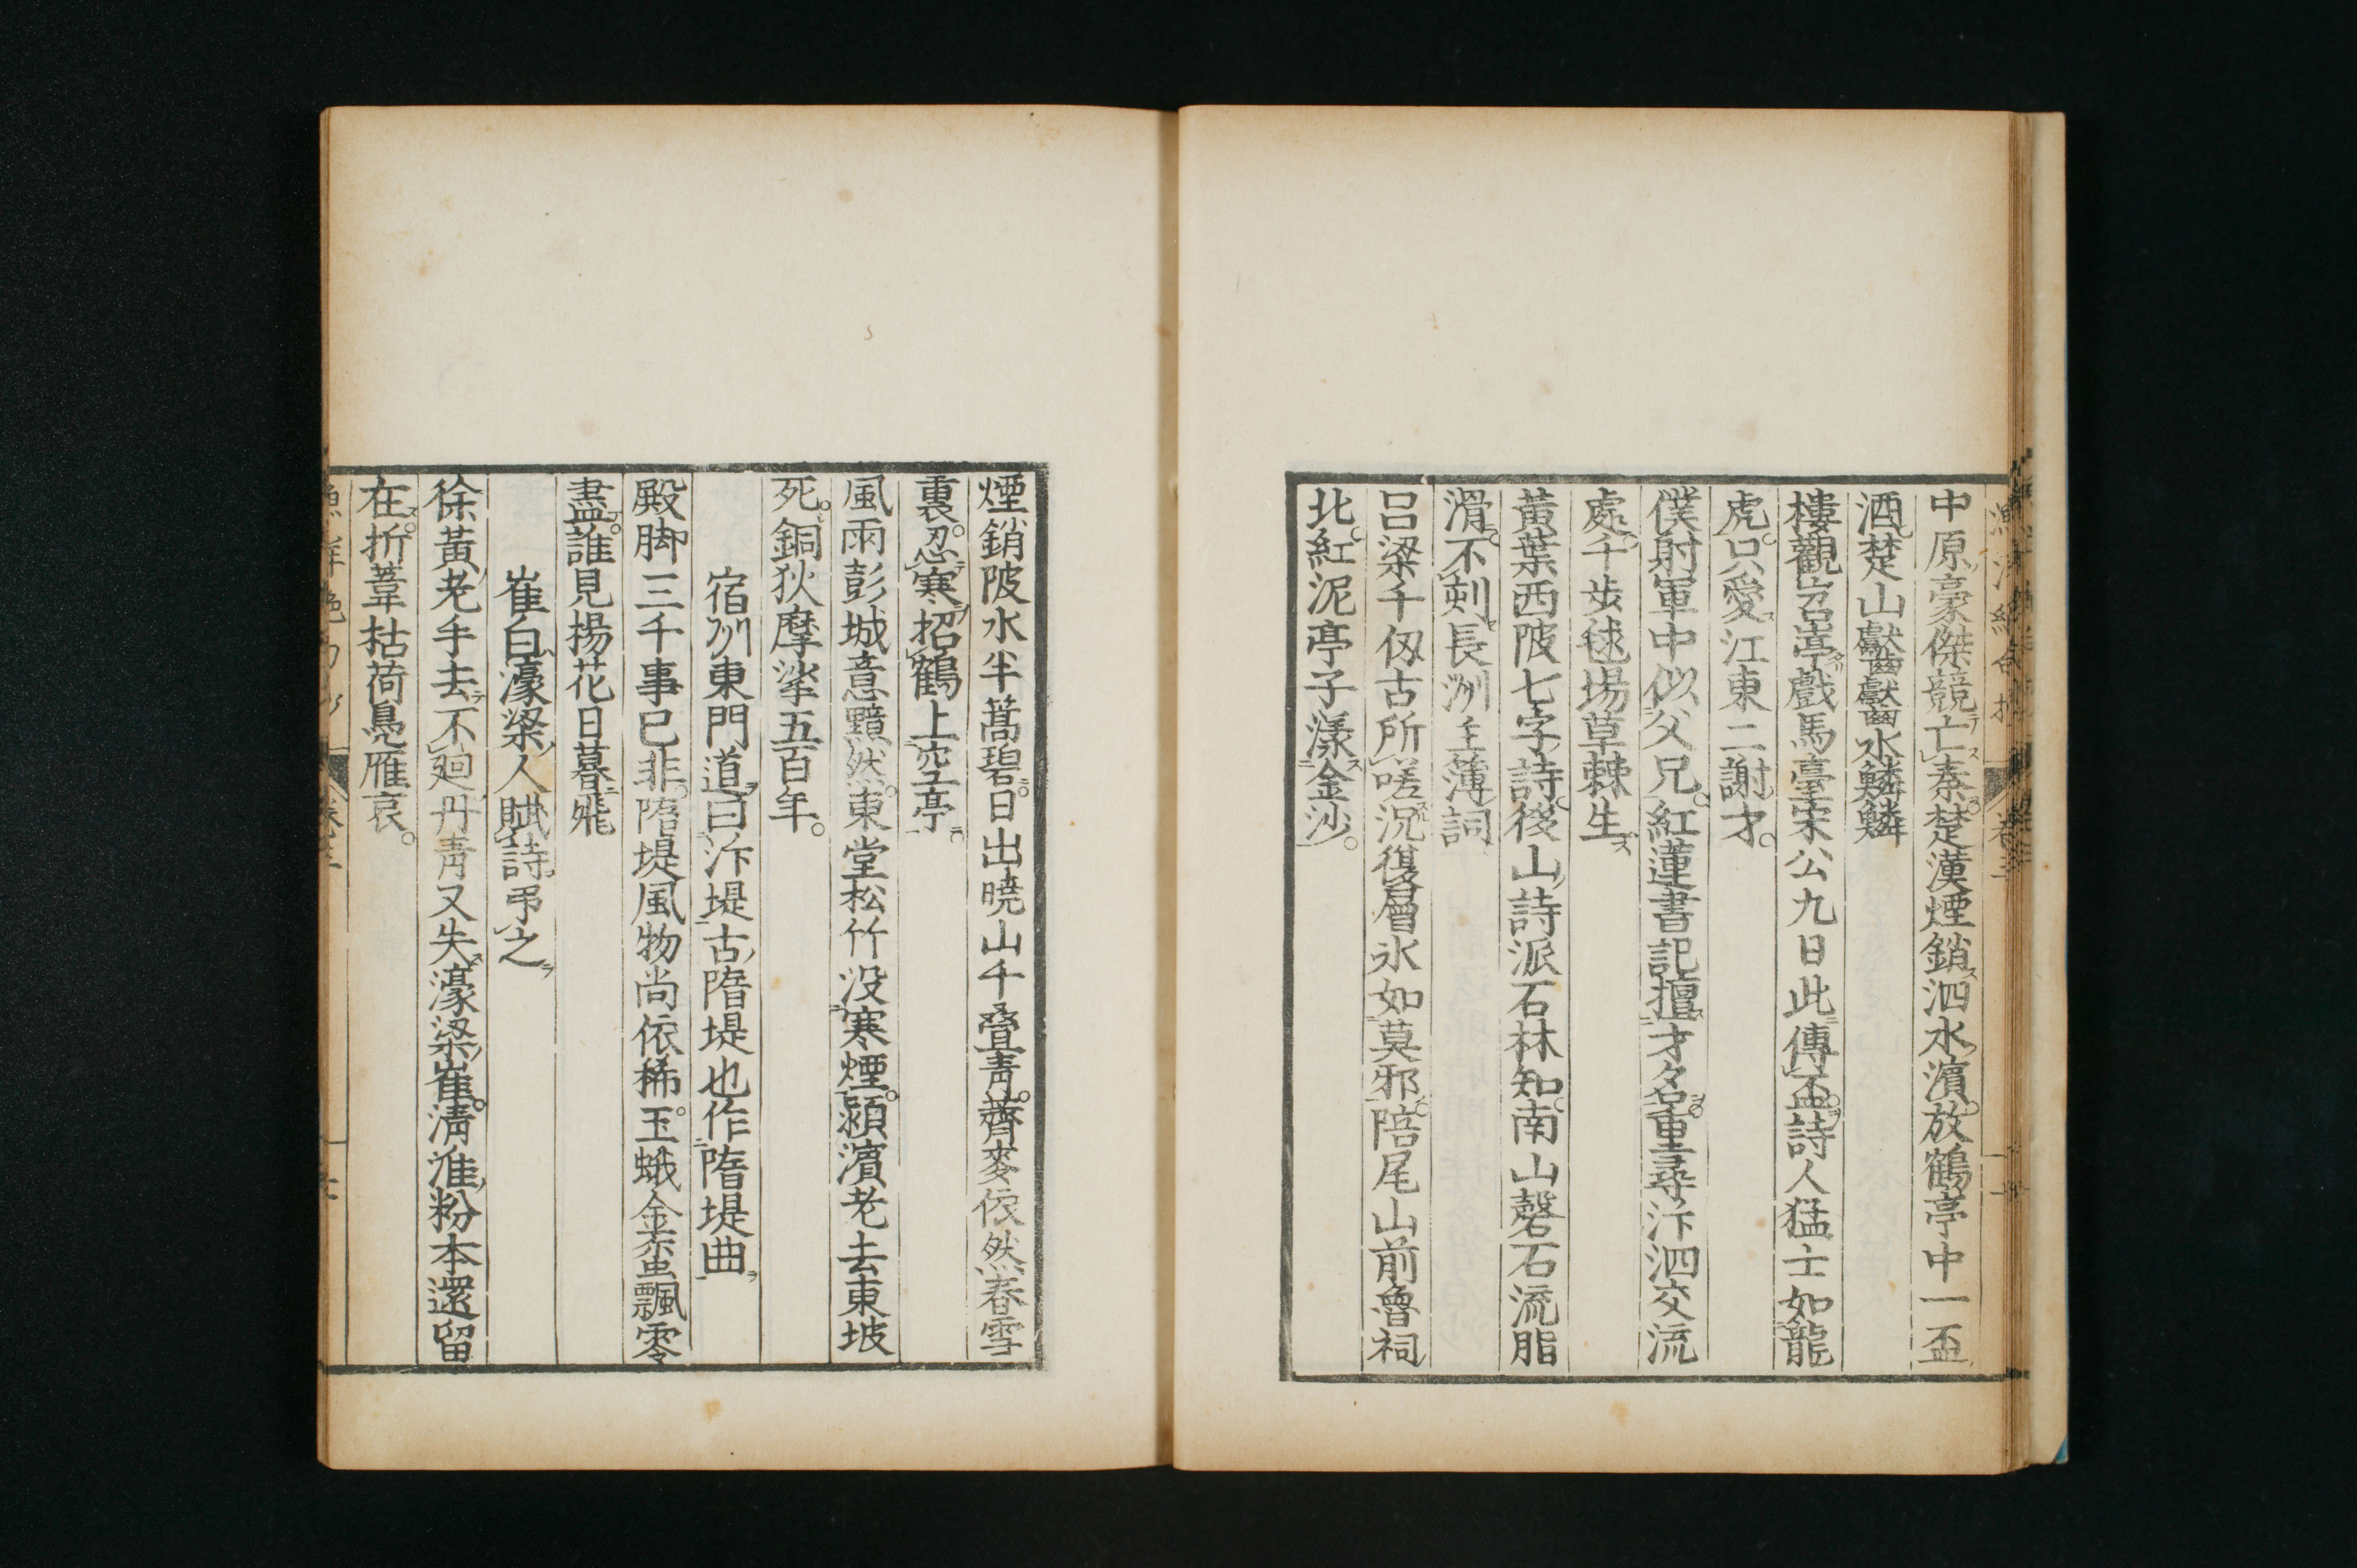 中原豪傑競亡秦楚漢煙銷泗水濱放鶴亭中一盃
酒楚山巘巘水鱗鱗
樓觀岧嶤戲馬臺宋公九日此傳盃詩人猛士如龍
虎只愛江東二謝才
僕射軍中似父兄紅蓮書記擅才名重尋汴泗交流
處千步毬場草棘生
黃葉西陂七字詩後山詩派石林知南山磬石流脂
滑不剡長洲主薄詞
呂梁千仭古所嗟況復層氷如莫邪陪尾山前魯祠
北紅泥亭子漾金沙
煙銷陂水半蒿碧日出曉山千疊青薺麥依然春雪
裏忍寒招鶴上空亭
風雨彭城意黯然東堂松竹沒寒煙潁濱老去東坡
死銅狄摩挲五百年
宿州東門道曰汴堤古隋堤也作隋堤曲
殿脚三千事已非隋堤風物尚依稀玉蛾金䖝飄零
盡誰見揚花日暮飛
崔白濠梁人賦詩弔之
徐黃老手去不廻丹青又失濠梁崔清淮粉本還留
在折葦枯荷鳧雁哀
卷三